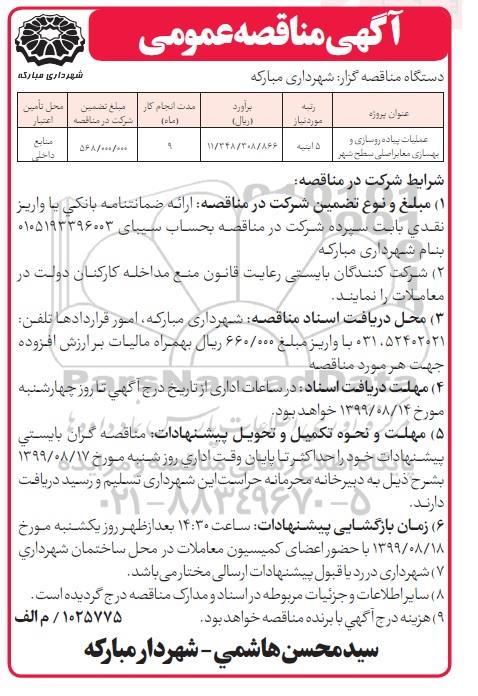 آگهی مناقصه عمومی
شهرداری مبارکه
دستگاه مناقصه گزار: شهرداری مبارکه
عنوان پروژه | رتبه موردنیاز | برآورد (ریال) | مدت انجام کار (ماه) | مبلغ تضمین شرکت در مناقصه | محل تأمین اعتبار
عملیات پیاده روسازی و بهسازی معابر اصلی سطح شهر | ۵ ابنیه | ۱۱/۳۴۸/۳۰۸/۸۶۶ | ۹ | ۵۶۸/۰۰۰/۰۰۰ | منابع داخلی
شرایط شرکت در مناقصه:
۱) مبلغ و نوع تضمین شرکت در مناقصه: ارائه ضمانتنامه بانکی یا واریز
نقدی بابت سپرده شرکت در مناقصه بحساب سیبای ۰۱۰۵۱۹۳۳۹۶۰۰۳
بنام شهرداری مبارکه
۲) شرکت کنندگان بایستی رعایت قانون منع مداخله کارکنان دولت در
معاملات را نمایند.
۳) محل دریافت اسناد مناقصه: شهرداری مبارکه، امور قراردادها تلفن:
۰۳۱.۵۲۴۰۲۰۲۱ با واریز مبلغ ۶۶۰/۰۰۰ ریال بهمراه مالیات بر ارزش افزوده
جهت هر مورد مناقصه
۴) مهلت دریافت اسناد: در ساعات اداری از تاریخ درج آگهی تا روز چهارشنبه
مورخ ۱۳۹۹/۰۸/۱۴ خواهد بود.
۵) مهلت و نحوه تکمیل و تحویل پیشنهادات: مناقصه گران بایستی
پیشنهادات خود را حداکثر تا پایان وقت اداری روز شنبه مورخ ۱۳۹۹/۰۸/۱۷
بشرح ذیل به دبیرخانه محرمانه حراست این شهرداری تسلیم و رسید دریافت
دارند.
۶) زمان بازگشایی پیشنهادات: ساعت ۱۴:۳۰ بعدازظهر روز یکشنبه مورخ
۱۳۹۹/۰۸/۱۸ با حضور اعضای کمیسیون معاملات در محل ساختمان شهرداری
۷) شهرداری در رد یا قبول پیشنهادات ارسالی مختار می‌باشد.
۸) سایر اطلاعات و جزئیات مربوطه در اسناد و مدارک مناقصه درج گردیده است.
۹) هزینه درج آگهی با برنده مناقصه خواهد بود.
۱۰۲۵۷۷۵ / م الف
سید محسن هاشمی - شهردار مبارکه
ParsNamadData
۰۲۱-۸۸۳۴۹۶۷۰-۵